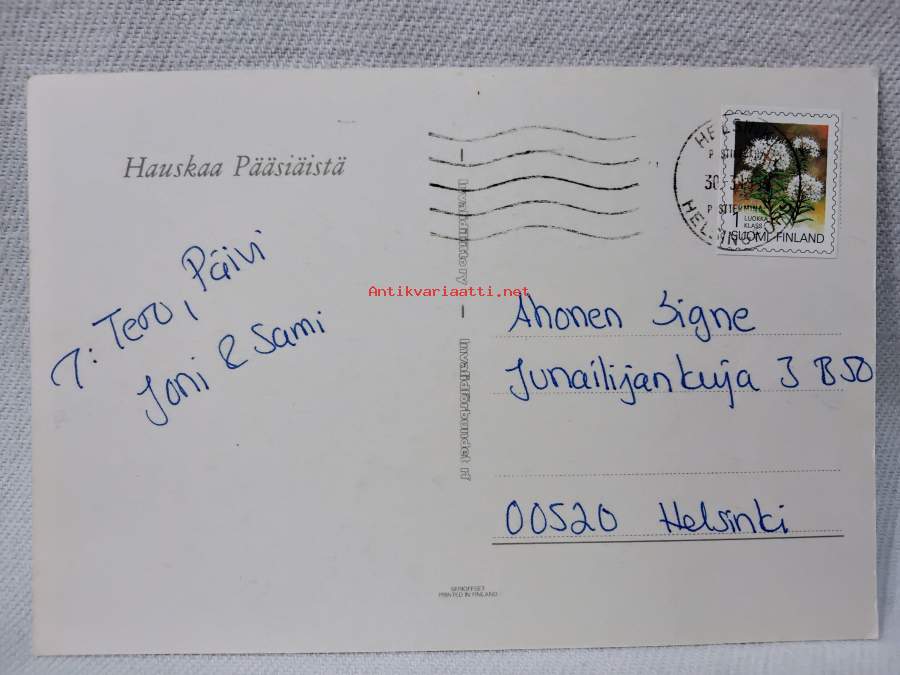 Hauskaa Pääsiäistä
T: Tero, Päivi
Joni & Sami
Invalidiliitto ry — Invalidförbundet rf
HELSINKI
30.3.
HELSINGFORS
1
LUOKKA
KLASS
SUOMI FINLAND
Antikvariaatti.net
Ahonen Signe
Junailijankuja 3 B 50
00520 Helsinki
SERIOFFSET
PRINTED IN FINLAND